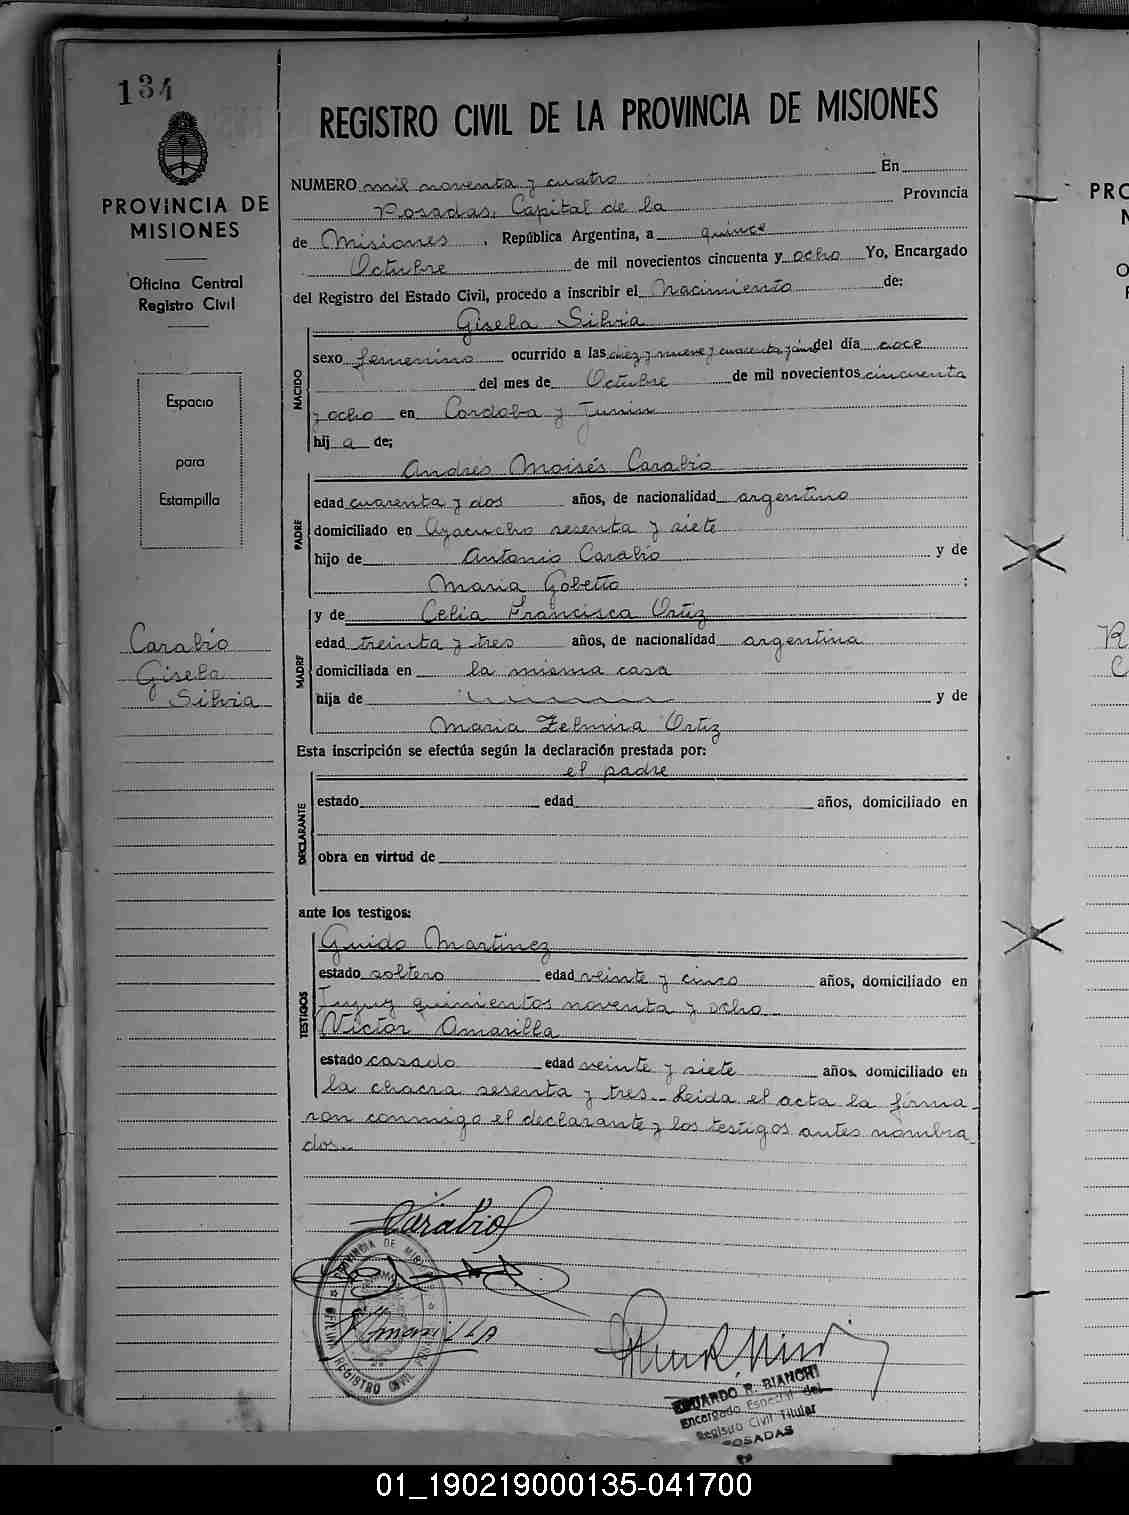 134
PROVINCIA DE
MISIONES
Oficina Central
Registro Civil
Espacio
para
Estampilla
Carabío
Gisela
Silvia
REGISTRO CIVIL DE LA PROVINCIA DE MISIONES
NUMERO mil noventa y cuatro En
Posadas, Capital de la Provincia
de Misiones, República Argentina, a quince
Octubre de mil novecientos cincuenta y ocho Yo, Encargado
del Registro del Estado Civil, procedo a inscribir el Nacimiento de:
NACIDO
Gisela Silvia
sexo femenino ocurrido a las diez y nueve y cuarenta y cinco del día doce
del mes de Octubre de mil novecientos cincuenta
y ocho en Cordoba y Junin
hij a de;
PADRE
Andrés Moisés Carabío
edad cuarenta y dos años, de nacionalidad argentino
domiciliado en Ayacucho sesenta y siete
hijo de Antonio Carabío y de
Maria Gobetto ;
MADRE
y de Celia Francisca Ortiz
edad treinta y tres años, de nacionalidad argentina
domiciliada en la misma casa
hija de y de
Maria Zelmira Ortiz
Esta inscripción se efectúa según la declaración prestada por:
DECLARANTE
el padre
estado edad años, domiciliado en
obra en virtud de
ante los testigos:
TESTIGOS
Guido Martinez
estado soltero edad veinte y cinco años, domiciliado en
Jujuy quinientos noventa y ocho
Victor Amarilla
estado casado edad veinte y siete años, domiciliado en
la chacra sesenta y tres.- Leida el acta la firma
ron conmigo el declarante y los testigos antes nombra
dos.-
Carabio
PROVINCIA DE MISIONES
REGISTRO CIVIL
EDUARDO R. BIANCHI
Encargado Especial del
Registro Civil Titular
POSADAS
PRO
01_190219000135-041700